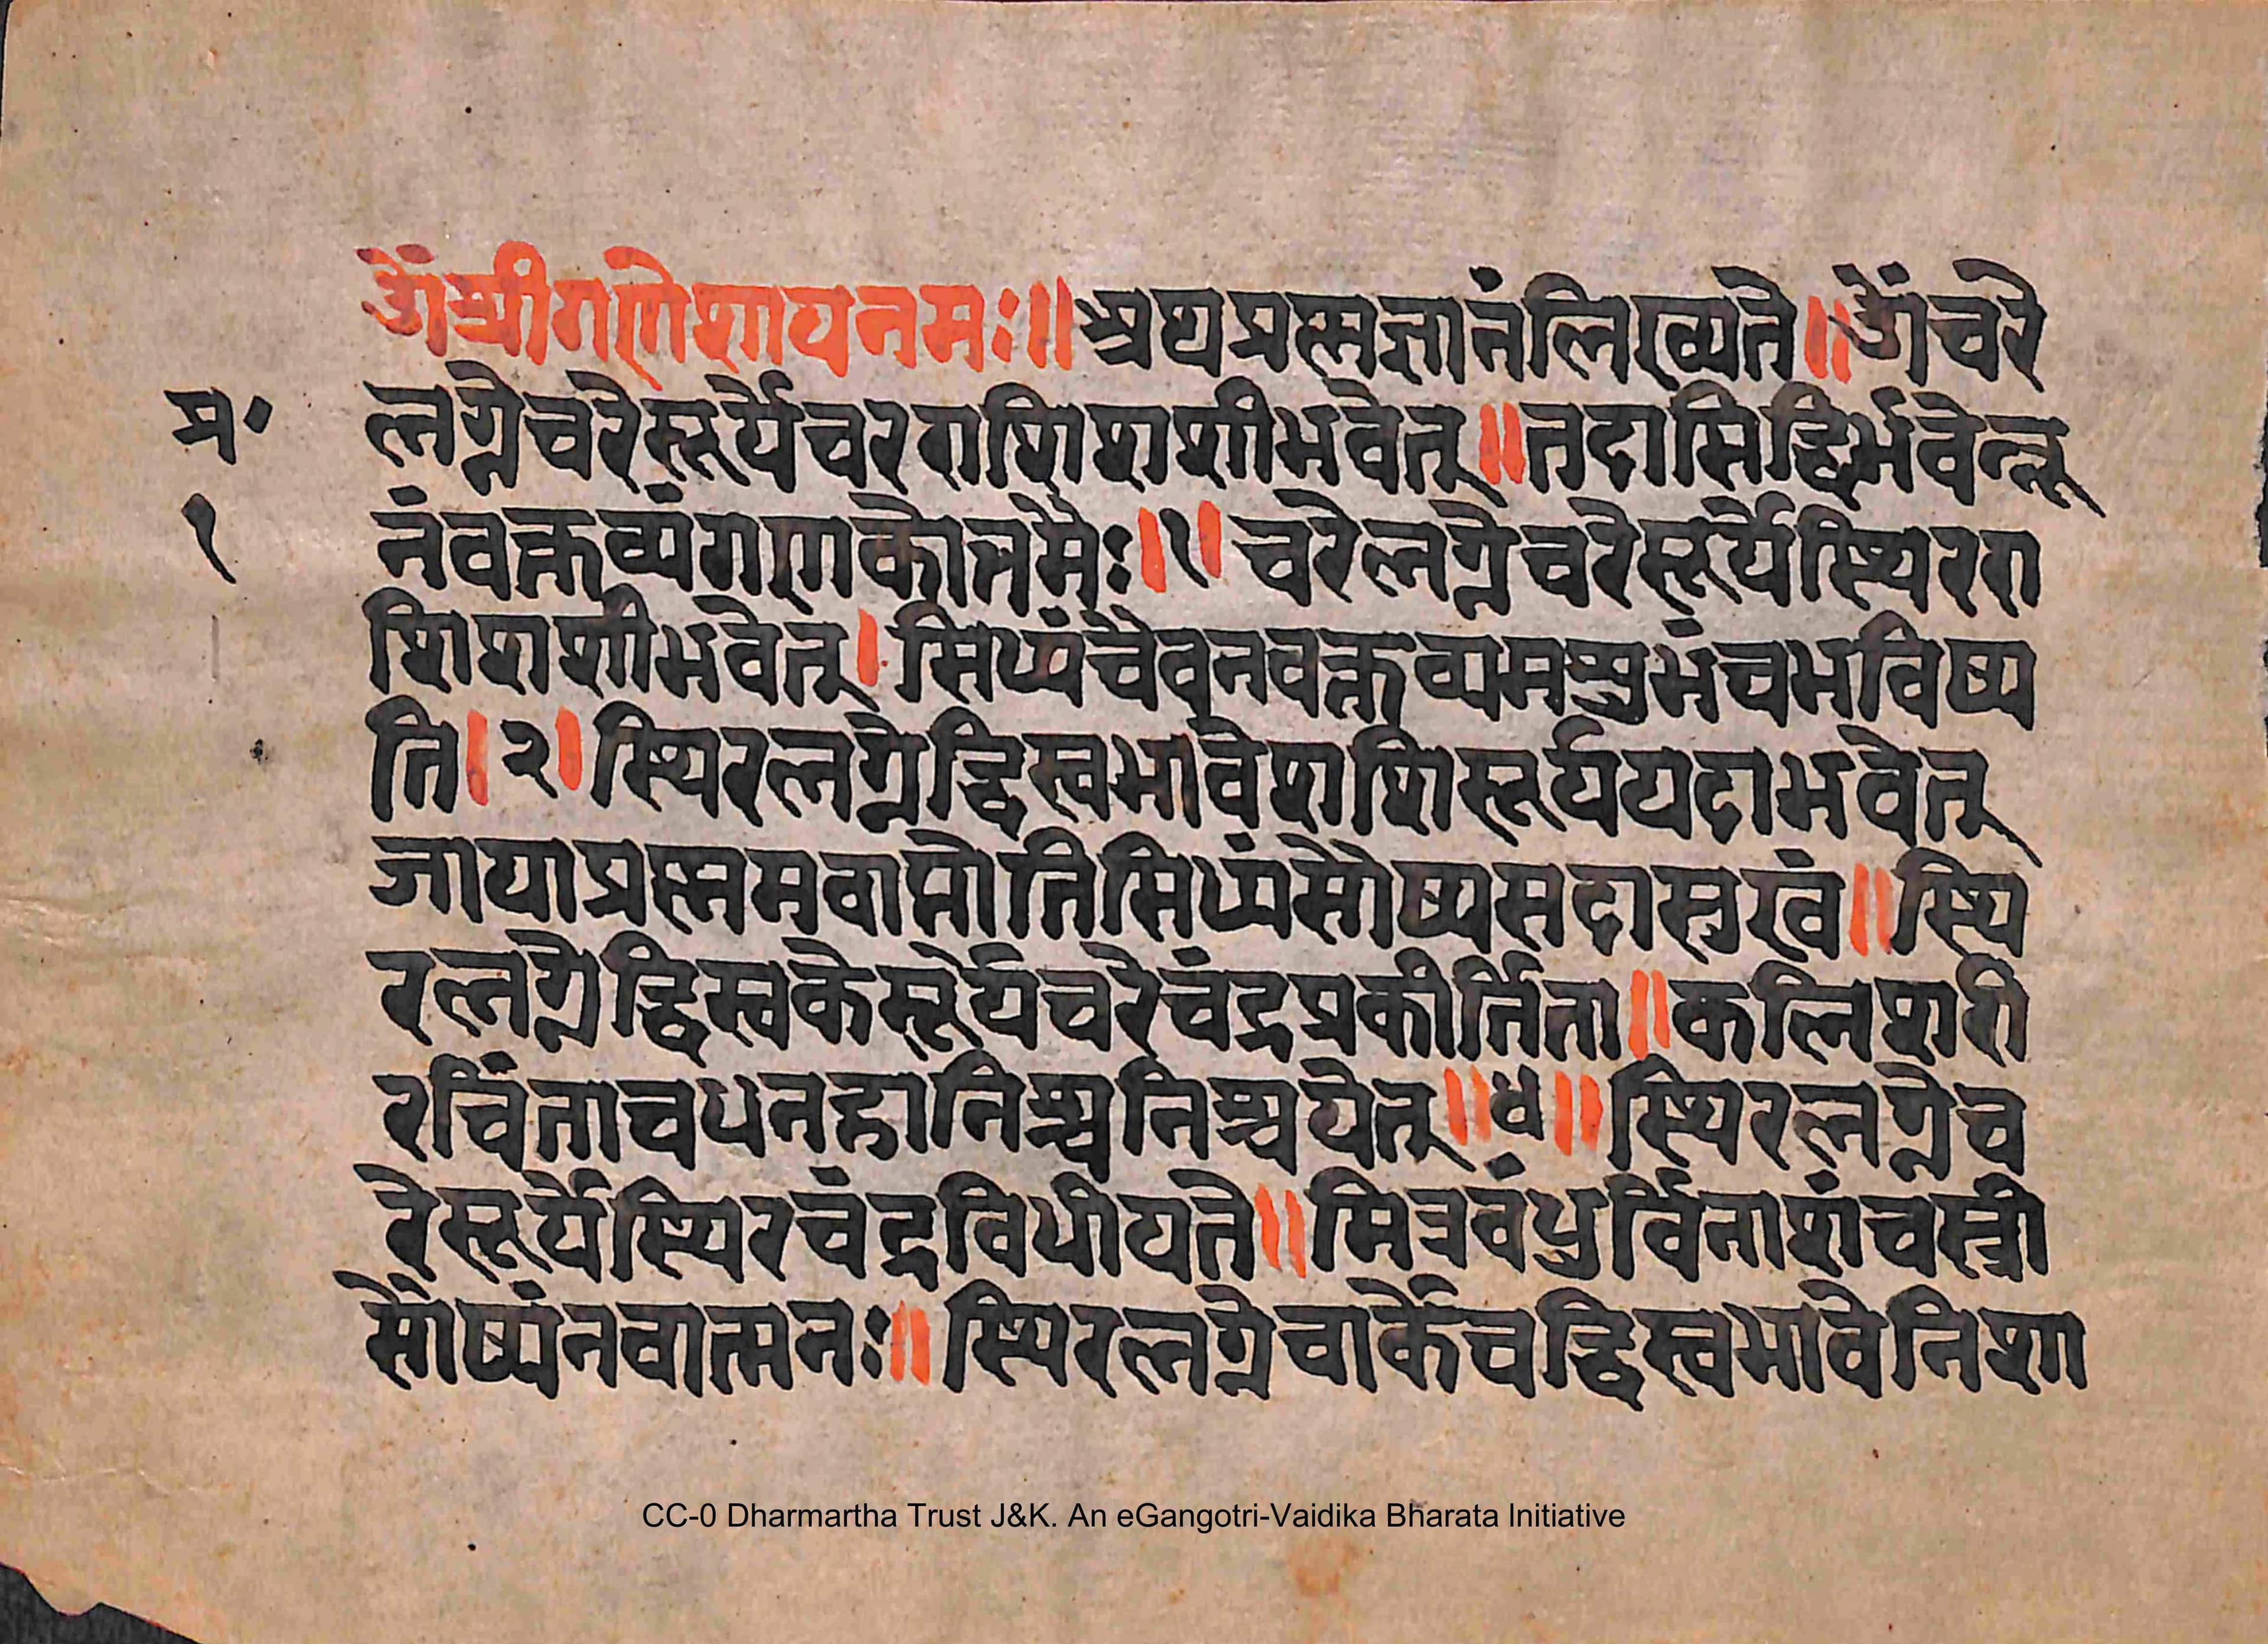 ॐश्रीगणेशायनमः॥अथप्रस्नज्ञानंलिख्यते॥ॐचरे
प्र॰
लग्नेचरेसूर्येचरराशिशशीभवेत्॥तदासिद्धिर्भवेन्नू
१
नंवक्तव्यंगणकोत्तमैः।१।चरेलग्नेचरेसूर्येस्थिररा
शिशशीभवेत्।सिध्यंचैवनवक्तव्यमशुभंचभविष्य
ति।२।स्थिरलग्नेद्विस्वभावेशशिसूर्ययदाभवेत्
जायाप्रस्नमवाप्नोतिसिध्यंसौष्यसदासुखं॥स्थि
रलग्नेद्विस्वकेसूर्येचरेचंद्रप्रकीर्तिता॥कलिशरी
रचिंताचधनहानिश्चनिश्चयेत्॥४॥स्थिरलग्नेच
रेसूर्येस्थिरचंद्रविधीयते॥मित्रबंधुर्विनाशंचस्त्री
सौष्यंनवात्मनः॥स्थिरलग्नेचार्केचद्विस्वभावेनिशा
CC-0 Dharmartha Trust J&K. An eGangotri-Vaidika Bharata Initiative